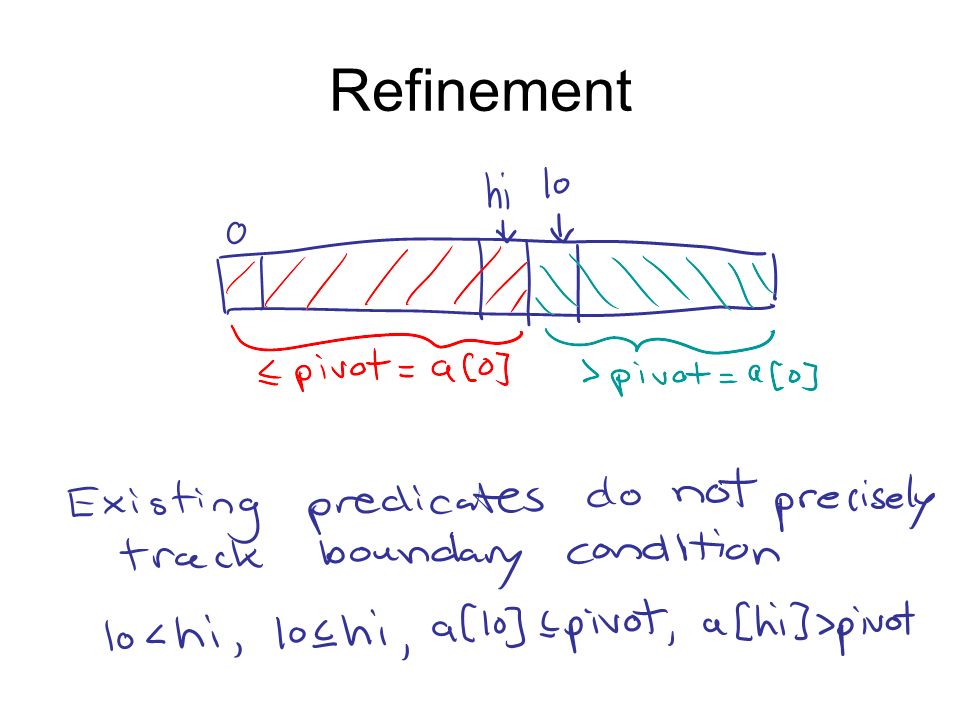 Refinement
hi lo
0
≤ pivot = a[0] > pivot = a[0]
Existing predicates do not precisely
track boundary condition
lo < hi, lo ≤ hi, a[lo] ≤ pivot, a[hi] > pivot